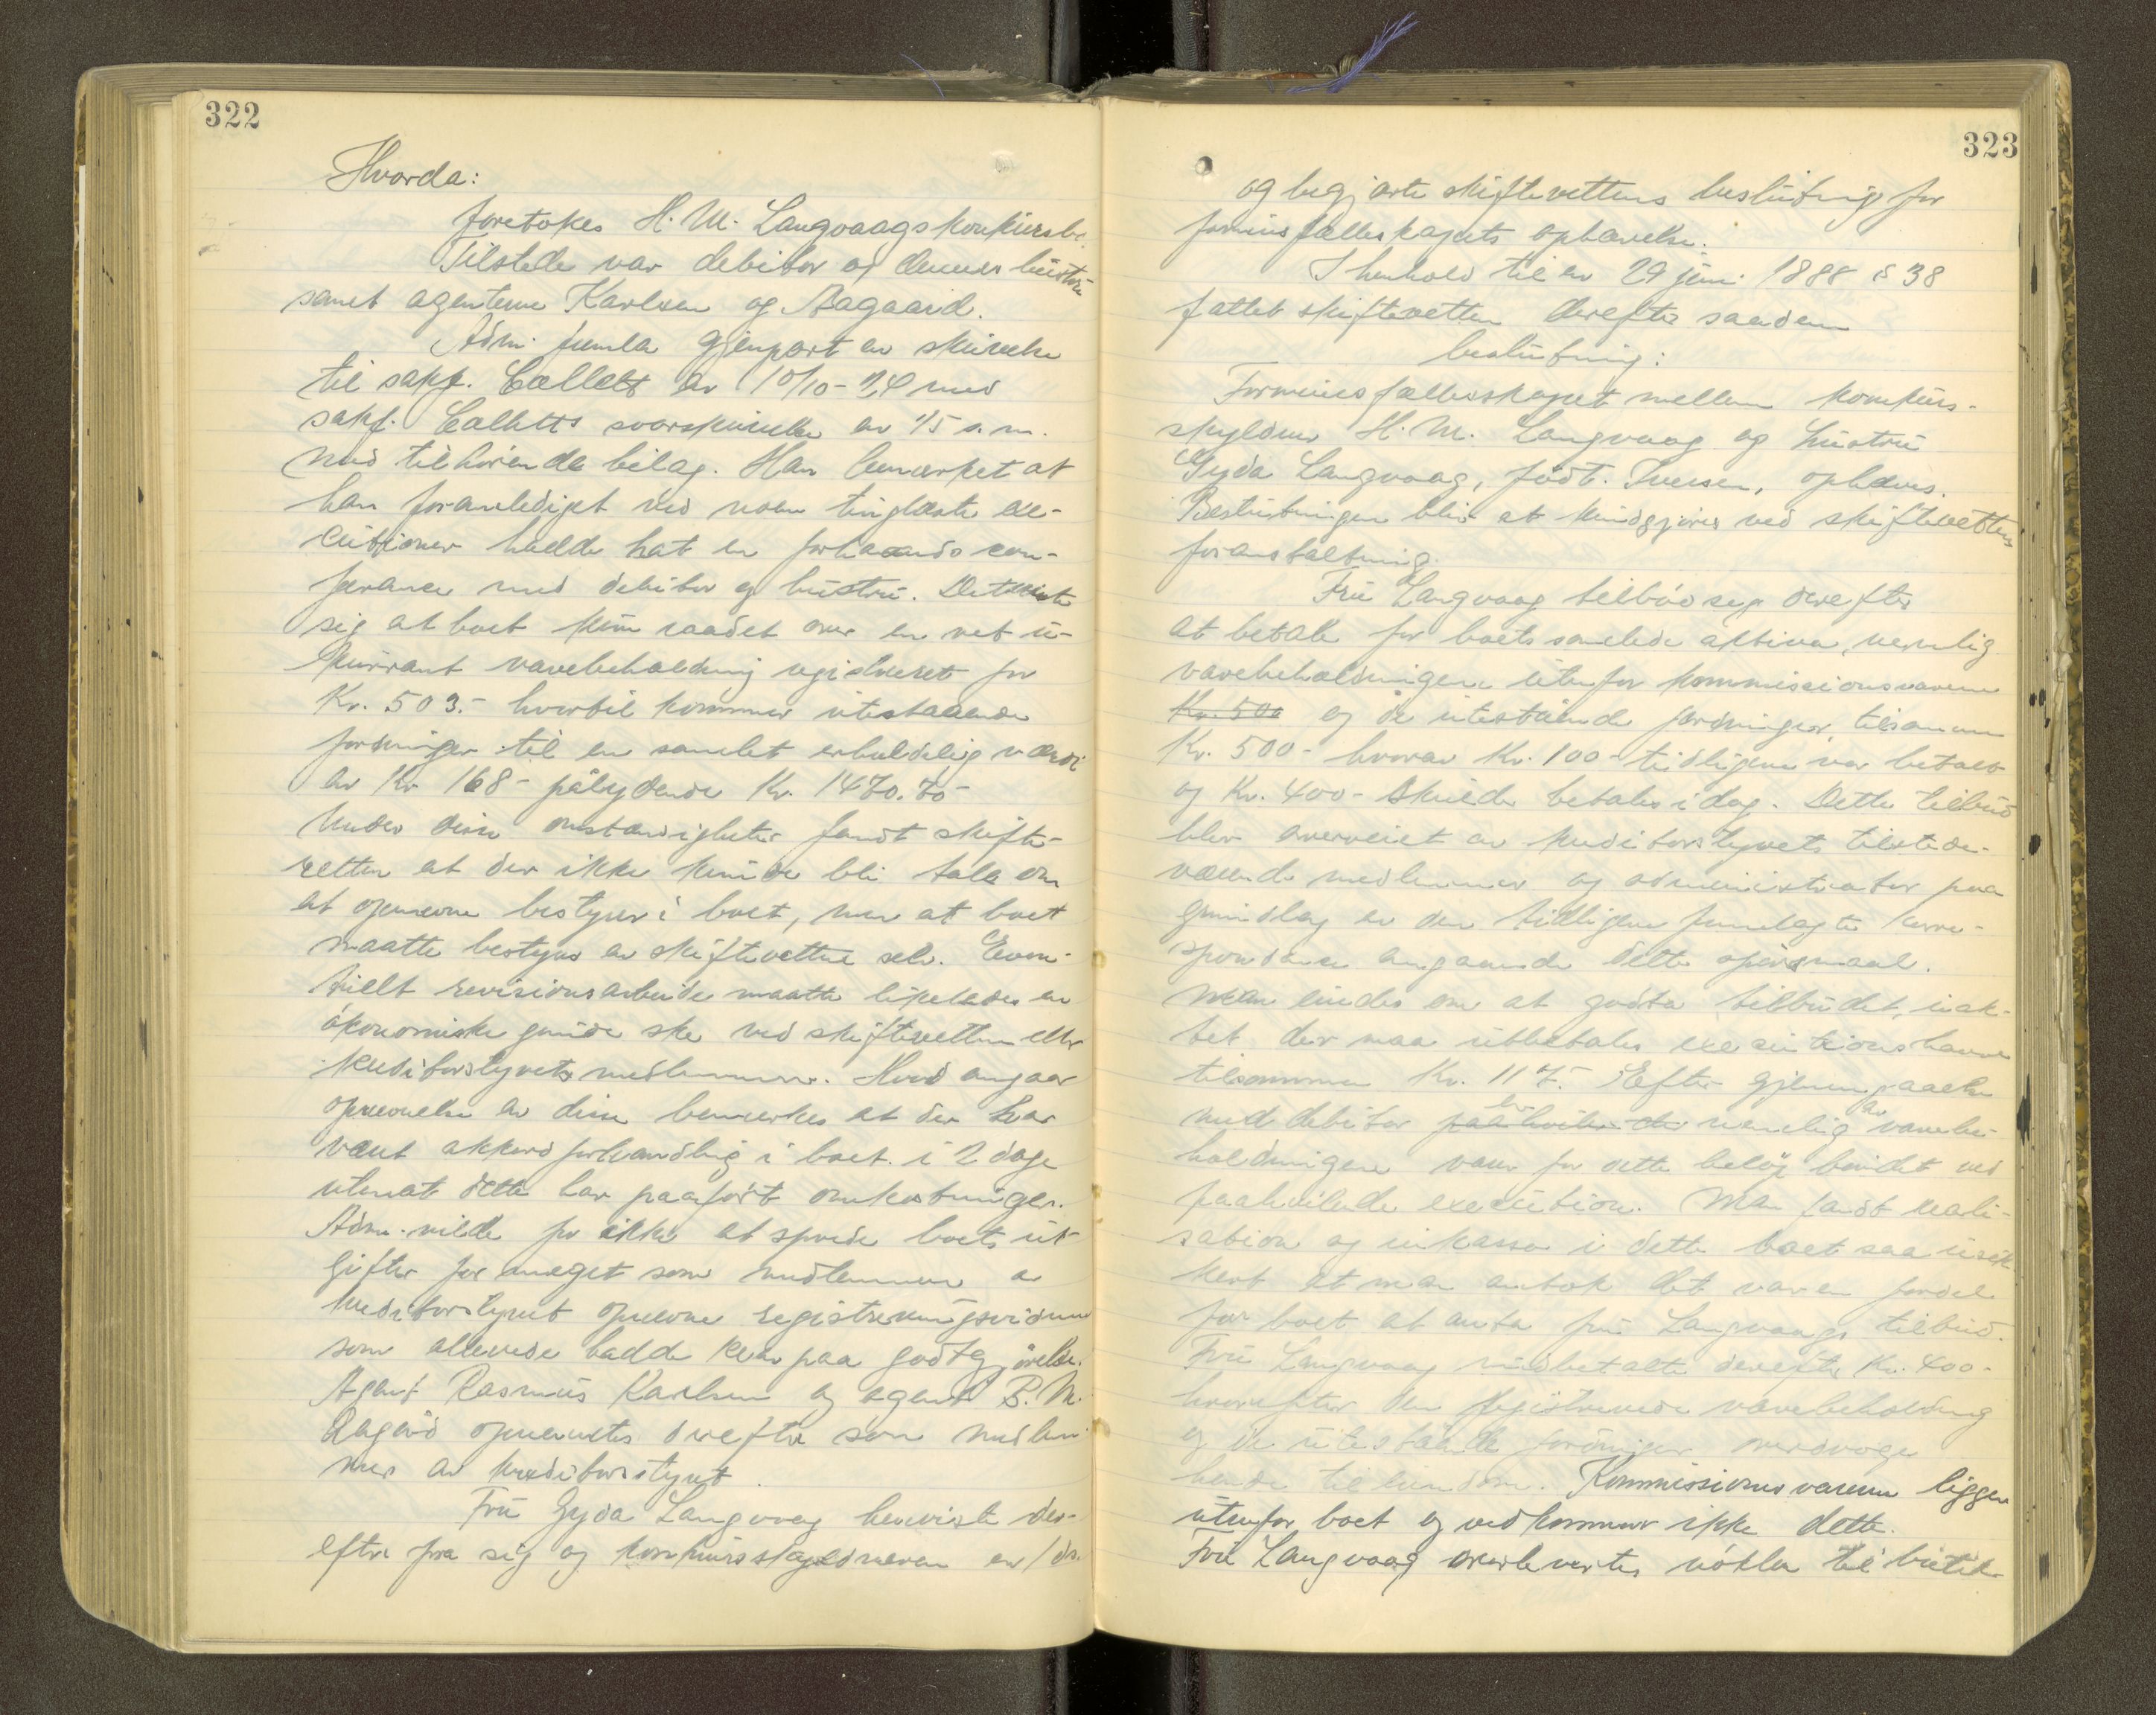 322
Hvorda:
foretokes H. M. Langvaags konkursbo.
Tilstede var debitor og dennes hustru
samt agenterne Karlsen og Aagaard.
Adm. fremla gjenpart av skrivelse
til sakf. Colletts av 10/10-24 med
sakf. Colletts svarskrivelse av 15 s.m.
med tilhørende bilag. Han bemerket at
han foranlediget ved noen tinglæste exe-
cutioner hadde hat en forhaands con-
ferance med debitor og hustru. Det viste
sig at boet kun raadet over en net u-
kurrant varebeholdning registreret for
Kr. 503.- hvortil kommer utestaaende
fordringer til en samlet erholdelig værdi
av Kr 168- pålydende Kr. 1470.70-
Under disse omstændigheter fandt skifte-
retten at der ikke kunde bli tale om
at opnevne bestyrer i boet, men at boet
maatte bestyres av skifteretten selv. Even-
tuelt revisionsarbeide maatte likeledes av
økonomiske grunde ske ved skifteretten eller
kreditorstyrets medlemmer. Hvad angaar
opnevnelse av disse bemerkes at der har
været akkordforhandling i boet i 2 dage
utenat dette har paaført omkostninger.
Adm. vilde for ikke at sprede boets ut-
gifter for meget som medlemmer av
kreditorstyret opnevne registreringsvidnene
som allerede hadde krav paa godtgjørelse.
Agent Rasmus Karlsen og agent B. M.
Aagård opnevntes derefter som medlem-
mer av kreditorstyret.
Fru Gyda Langvaag henviste der-
efter fra sig og konkursskyldneren
323
og begjærte skifterettens beslutning for
formuesfælleskapets ophævelse.
I henhold til lov 29 juni 1888 § 38
fattet skifteretten derefter saadan
beslutning:
Formuesfællesskapet mellem konkurs-
skyldner H. M. Langvaag og hustru
Gyda Langvaag, født Iversen, ophæves.
Beslutningen blir at kundgjøres ved skifterettens
foranstaltning.
Fru Langvaag tilbød sig derefter
at betale for boets samlede aktiva, nemlig
varebeholdningen utenfor kommissionsvarene
Kr. 500 og de utestående fordringer, tilsammen
Kr. 500- hvorav Kr. 100- tidligere var betalt
og Kr. 400- skulde betales i dag. Dette tilbud
blev overveiet av kreditorstyrets tilstede-
værende medlemmer og administrator paa
grundlag av den tidligere fremlagte korre-
spondance angaaende dette spørsmaal.
Man enedes om at godta tilbudet, uak-
tet der maa utbetales executionshavere
tilsammen Kr. 117.- Efter gjennemgaaelse
med debitor er paahvilende nemlig av varebe-
holdningen varer for dette beløp bundet ved
paahvilende execution. Man fandt reali-
sation og inkasso i dette boet saa usik-
kert at man antok det var en fordel
for boet at anta fru Langvaags tilbud.
Fru Langvaag indbetalte derefter Kr. 400-
hvorefter den registrerede varebeholdning
og de utestående fordringer overdroges
hende til eiendom. Kommissionsvarene ligger
utenfor boet og vedkommer ikke dette.
Fru Langvaag overlevertes nøklen til butik-